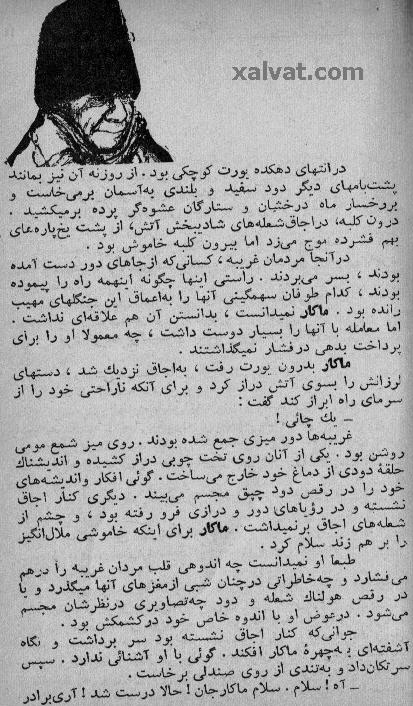 xalvat.com
درانتهای دهکده یورت کوچکی بود. از روزنه آن نیز بمانند
پشت‌بامهای دیگر دود سفید و بلندی به‌آسمان برمی‌خاست و
بررخسار ماه درخشان و ستارگان عشوه‌گر پرده برمیکشید.
درون کلبه، دراجاق‌شعله‌های شادیبخش آتش، از پشت یخ‌پاره‌های
بهم فشرده موج می‌زد اما بیرون کلبه خاموش بود.
درآنجا مردمان غریبه، کسانی‌که ازجاهای دور دست آمده
بودند، بسر می‌بردند. راستی اینها چگونه اینهمه راه را پیموده
بودند، کدام طوفان سهمگینی آنها را به‌اعماق این جنگلهای مهیب
رانده بود. ماکار نمیدانست، بدانستن آن هم علاقه‌ای نداشت.
اما معامله با آنها را بسیار دوست داشت، چه معمولا او را برای
پرداخت بدهی درفشار نمیگذاشتند.
ماکار بدرون یورت رفت، به‌اجاق نزدیك شد، دستهای
لرزانش را بسوی آتش دراز کرد و برای آنکه ناراحتی خود را از
سرمای راه ابراز کند گفت:
ـ یك چائی!
غریبه‌ها دور میزی جمع شده بودند. روی میز شمع مومی
روشن بود. یکی از آنان روی تخت چوبی دراز کشیده و اندیشناك
حلقهٔ دودی از دماغ خود خارج می‌ساخت. گوئی افکار واندیشه‌های
خود را در رقص دود چپق مجسم می‌بیند. دیگری کنار اجاق
نشسته و در رؤیاهای دور و درازی فرو رفته بود، و چشم از
شعله‌های اجاق برنمیداشت. ماکار برای اینکه خاموشی ملال‌انگیز
را بر هم زند سلام کرد.
طبعا او نمیدانست چه اندوهی قلب مردان غریبه را درهم
می‌فشارد و چه‌خاطراتی درچنان شبی ازمغزهای آنها میگذرد و یا
در رقص هولناك شعله و دود چه‌تصاویری درنظرشان مجسم
می‌شود. درعوض او با اندوه خاص خود درکشمکش بود.
جوانی‌که کنار اجاق نشسته بود سر برداشت و نگاه
آشفته‌ای به‌چهرهٔ ماکار افکند. گوئی با او آشنائی ندارد. سپس
سرتکان‌داد و به‌تندی از روی صندلی برخاست.
ـ آه! سلام. سلام ماکارجان! حالا درست شد! آری‌برادر